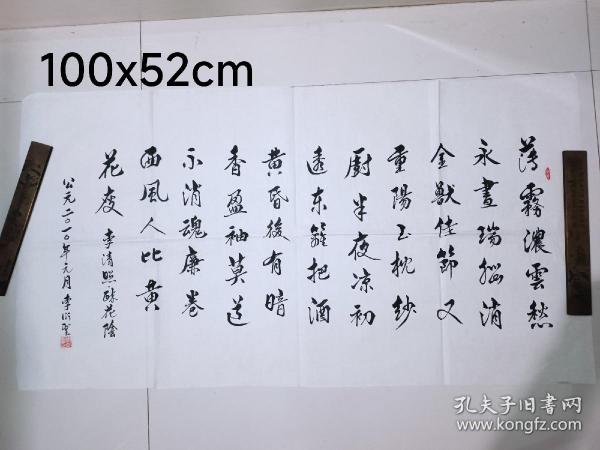 100x52cm
薄霧濃雲愁
永晝瑞腦消
金獸佳節又
重陽玉枕紗
廚半夜凉初
透東籬把酒
黄昏後有暗
香盈袖莫道
不消魂廉卷
西風人比黄
花瘦
李清照醉花陰
公元二〇一〇年元月李
孔夫子旧书网
www.kongfz.com